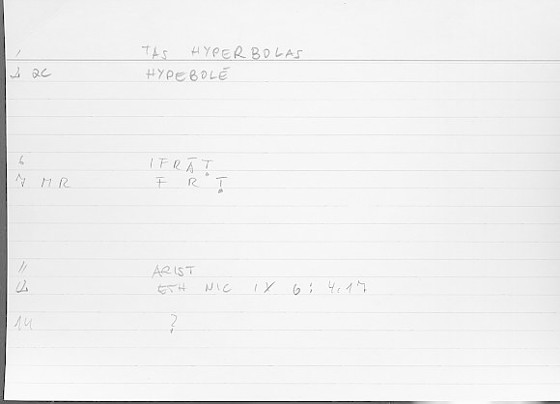 1 TAS HYPERBOLAS
2 QC HYPEBOLĒ
6 IFRĀṬ
7 MR F R Ṭ
11 ARIST
12 ETH NIC IV 6: 4.17
14 ?